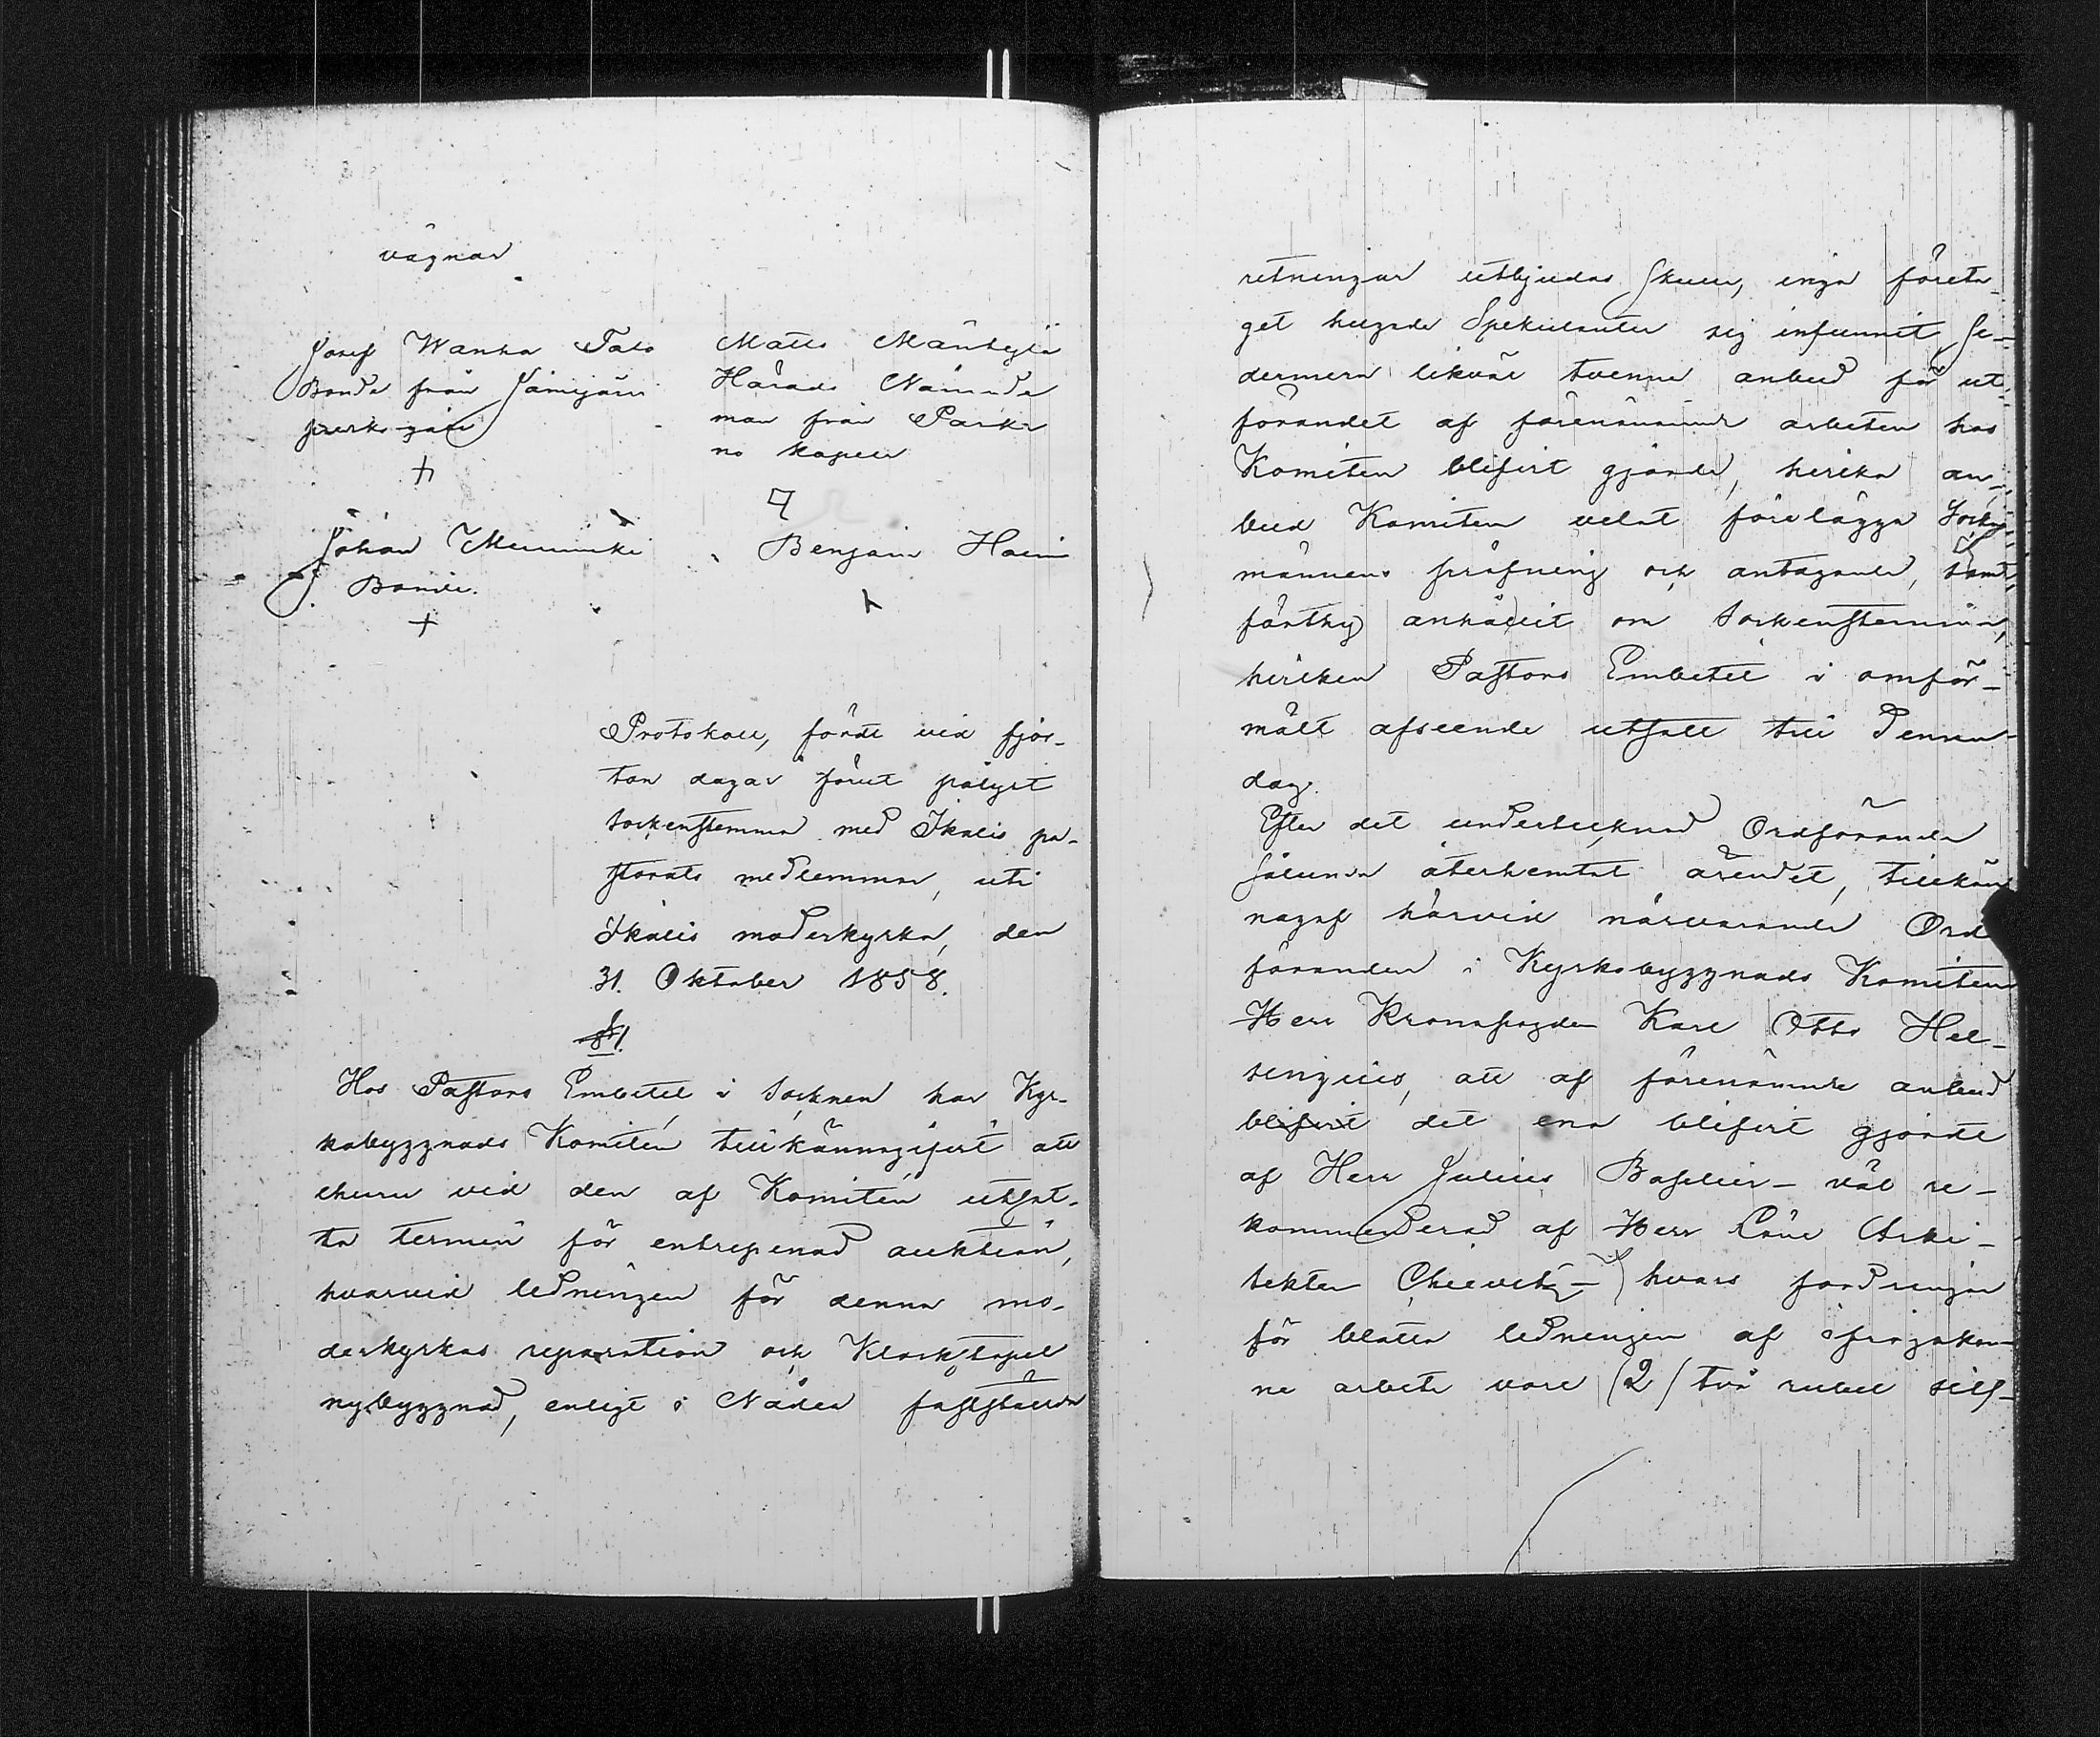 vägnar
Josef Wanha Talo
Bonde från Jämijärvi
+
Johan Memmiki
Bonde.
+
Matts Mäntylä
Härads Nämnde
man från Parka
no kapell
Benjam Haini
Protokoll, fördt vid fjor-
ton dagar förut pålyst
sockenstemma med Ikalis pa-
storats medlemmar, uti
Ikalis moderkyrka, den
31. Oktober 1858.
§1.
Hos Pastors Embetet i socknen har Kyr-
kobyggnads Komitén tillkännagifvit att
ehuru vid den af Komitén utsat-
ta termin för entreprenad auktion,
hvarvid ledningen för denna mo-
derkyrkas reparation och Klockstapel
nybyggnad, enligt i Nåder fastställda
ritningar utbjudas skull, inga företa-
get hugade Spekulanter sig infunnit, se-
dermera likväl tvenne anbud för ut-
förandet af förenämnde arbeten hos
Komiten blifvit gjorde, hvilka an-
bud Komiten velat förelägga Socken
männens pröfning och antagande, samt
förthy anhållit om sockenstemma,
hvilken Pastors Embetet i omför-
mält afseende utsatt till denna
dag.
Efter det undertecknad Ordförande
sålunda återhemtat ärendet, tillkän
nagaf härvid närvarande Ord
föranden i Kyrkobyggnads Komiten
Herr Kronofogden Karl Otto Hel-
singius, att af förenämnde anbud
blifvit det ena blifvit gjordt
af Herr Julius Basilier - väl re-
kommenderad af Herr Läne Arki-
tekten Chiewitz - hvars fordringar
för blotta ledningen af ifrågakom
ne arbete vore /2/ två rubel silf-